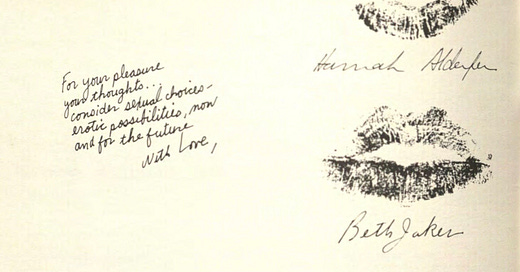 For your pleasure
your thoughts...
consider sexual choices-
erotic possibilities, now
and for the future
With Love,
Hannah Alderfer
Beth Jaker